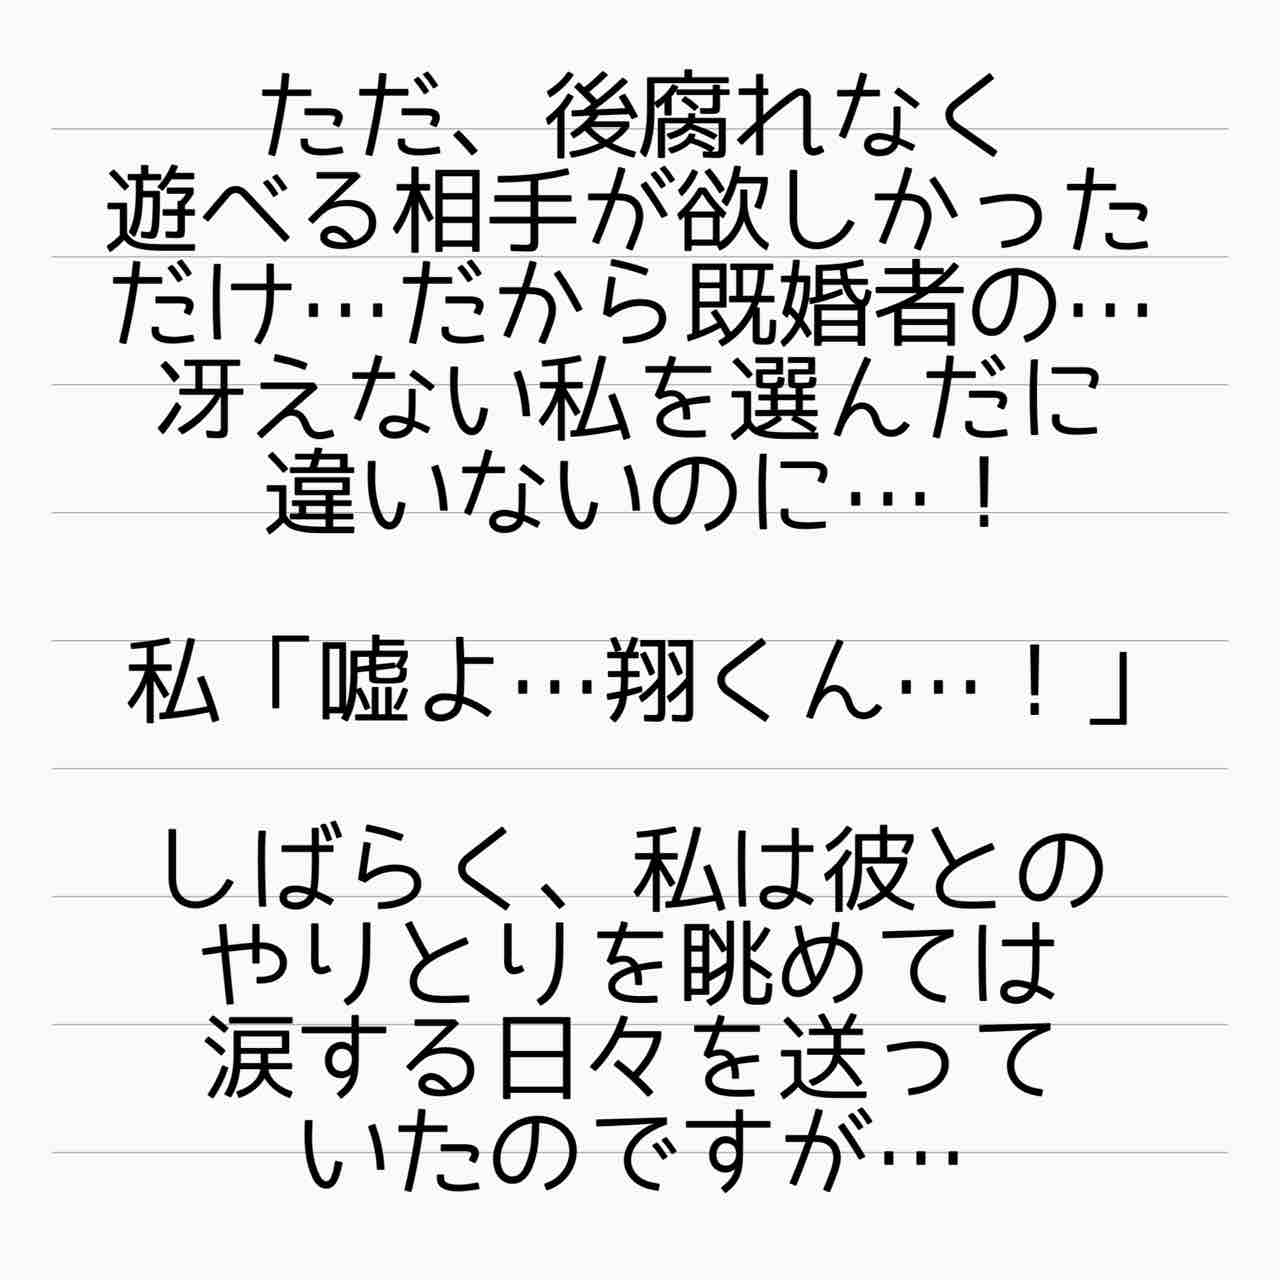 ただ、後腐れなく
遊べる相手が欲しかった
だけ…だから既婚者の…
冴えない私を選んだに
違いないのに…！
私「嘘よ…翔くん…！」
しばらく、私は彼との
やりとりを眺めては
涙する日々を送って
いたのですが…